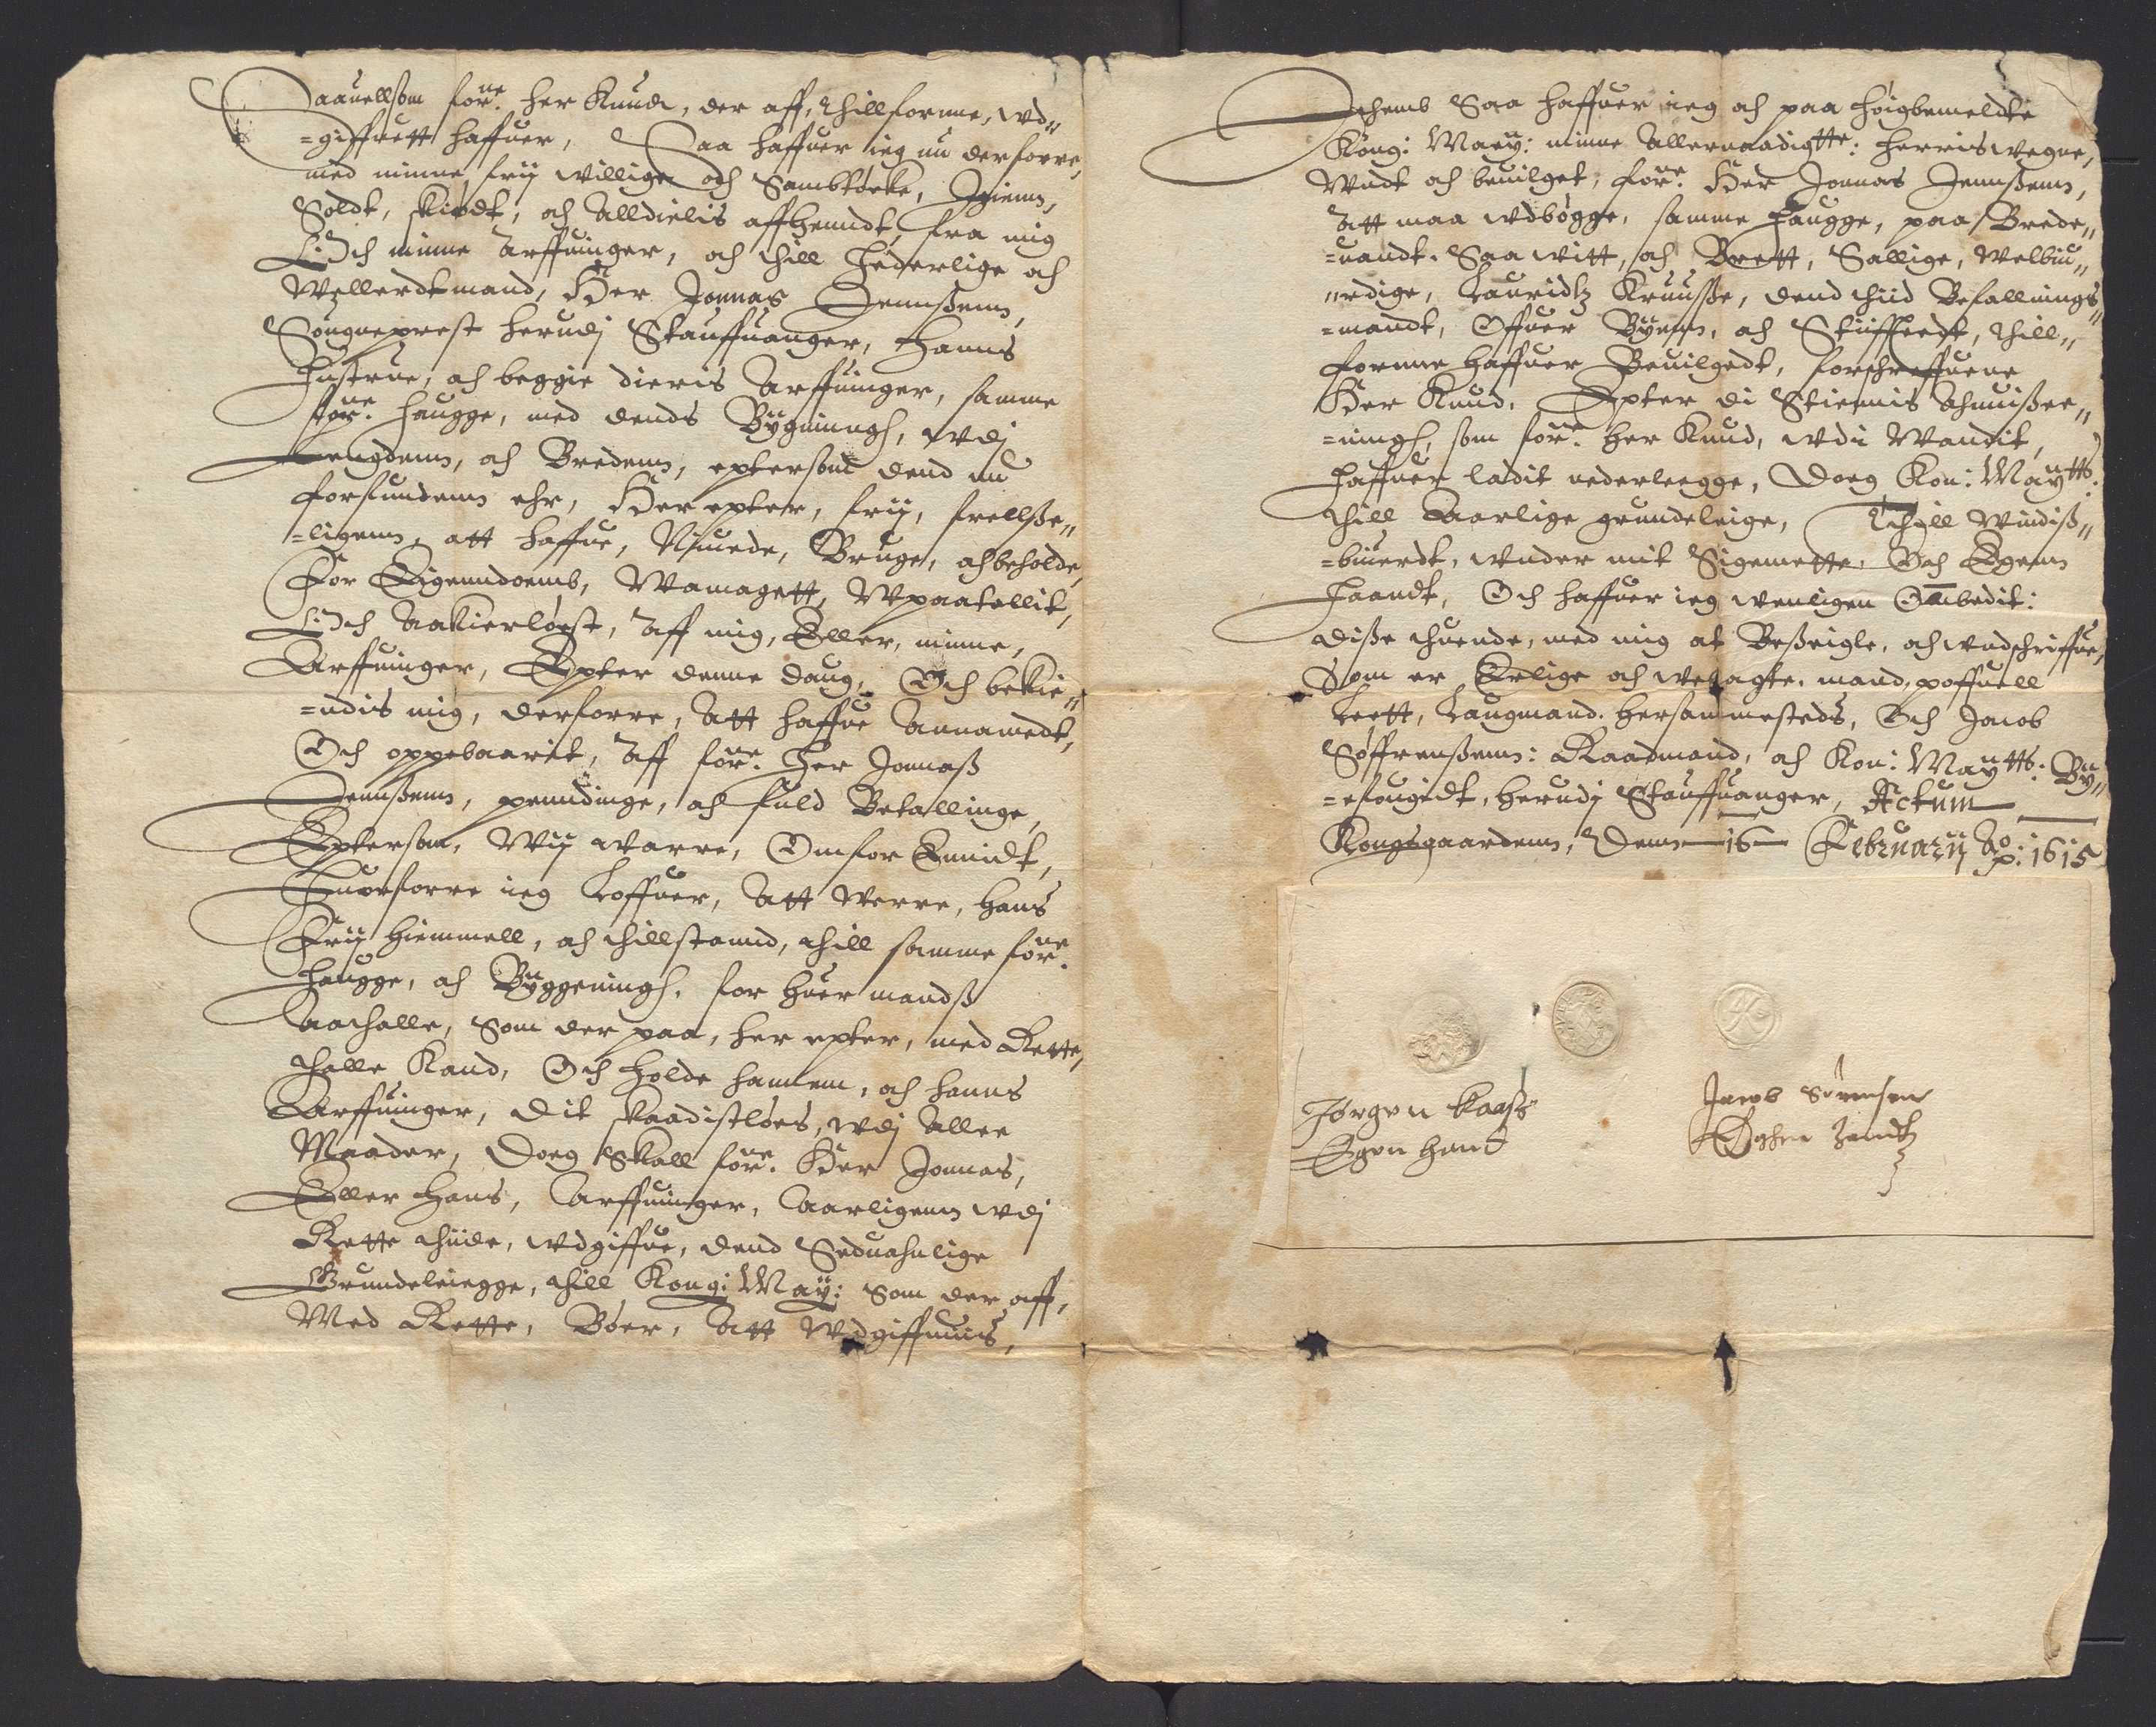 Saauellsom for:ne her Knud, der aff, thillforrne, wd„
=giffuett haffuer, Saa haffuer ieg nu derforre,
med minne frij willige och Sambtøcke, Igiem,
Soldt, skiødt, och Alldielis affhemdt, fra mig
Och minne Arffuinger, och thill Hederlige och
Wellerdtmand, Her Jonnas Jennßenn,
Sougneprest herudj Stauffuanger, Hanns
Hustrue, och beggie dieris Arffuinger, samme
for:ne Haugge, med dends Bÿgninngh, wdj
Lengdenn, och Bredenn, eptersom dend nu
forfundenn ehr, Her epter, frij, frellße„
=ligenn, att haffue, Niuede, Bruge, och beholde,
For Eigenndoemb, Wamagett, Wpaatallit,
Och Aakierløest, Aff mig, Eller, minne,
Arffuinger, Epter denne daug, Och bekie„
=ndis mig, derforre, Att haffue Annamedt,
Och oppebaarit, Aff for:ne Her Jonnaß
Jennßenn, penndinge, och fuld Betallinge,
Eptersom, Wij warre, Omfor Eenidt,
Huorforre ieg Loffuer, Att Verre, Hans
Frij hiemmell, och thillstannd, thill samme for:ne
Haugge, och Bÿggeningh, for huer mandß
Aathalle, Som der paa, her epter, med Rette,
thalle Kand, Och Holde hannem, och hanns
Arffuinger, dit skaadistløes, wdj Allee
Maader, Doeg Skall for:ne Her Jonnas,
Eller Hans, Arffuinger, Aarligenn wdj
Rette thiide, wdgiffue, dend Seduahnlige
Grundeleiegge, thill Kong: Maÿ: Som der aff,
Med Rette, Bøer, Att Wdgiffuuis,
Ithemb Saa haffuer ieg och paa høigbemeldte
Kong: Maeÿ: minne Allernaadigtte: Herris wegne,
Wndt och beuilget, for:ne Her Jonnas Jennßenn,
Att maa wdbøgge, samme Haugge, paa Brede„
=uandt. Saa witt, och Brett, Sallige, Welbiu„
„rdige, Lauridtz Kruusße, dend thiid Befallnings„
=mandt, Offuer Bÿenn, och Stiifftedt, thill„
forrne haffuer Beuilgedt, forschreffuene
Her Knud. Epter di Stiennis Ahnuißee„
=ningh, som for:ne her Knud, wdi Wandit,
Haffuer ladit nederleegge, Doeg Kon: Maÿtts:
thill Aarlige grundeleige, Thill Windiß„
=biuerdt, wnder mit Sigenette, Och Egenn
Haandt, Och haffuer ieg wenligen Ombedit:
diße thuende, med mig at Beßeigle, och wndschriffue,
Som er Erlige och wetagte, mand, poffuell
Leett, Laugmand. hersammesteds, Och Jacob
Søffrenßenn: Raadmand, och Kon: Maÿtts: Bÿ„
=efougedt, herudj Stauffuanger, Actum
Kongsgaardenn, Denn 16 Februarij Ao p: 1615
Jørgen Kaaſs
Egen hand
Jacob Sørensen
Eghen handt